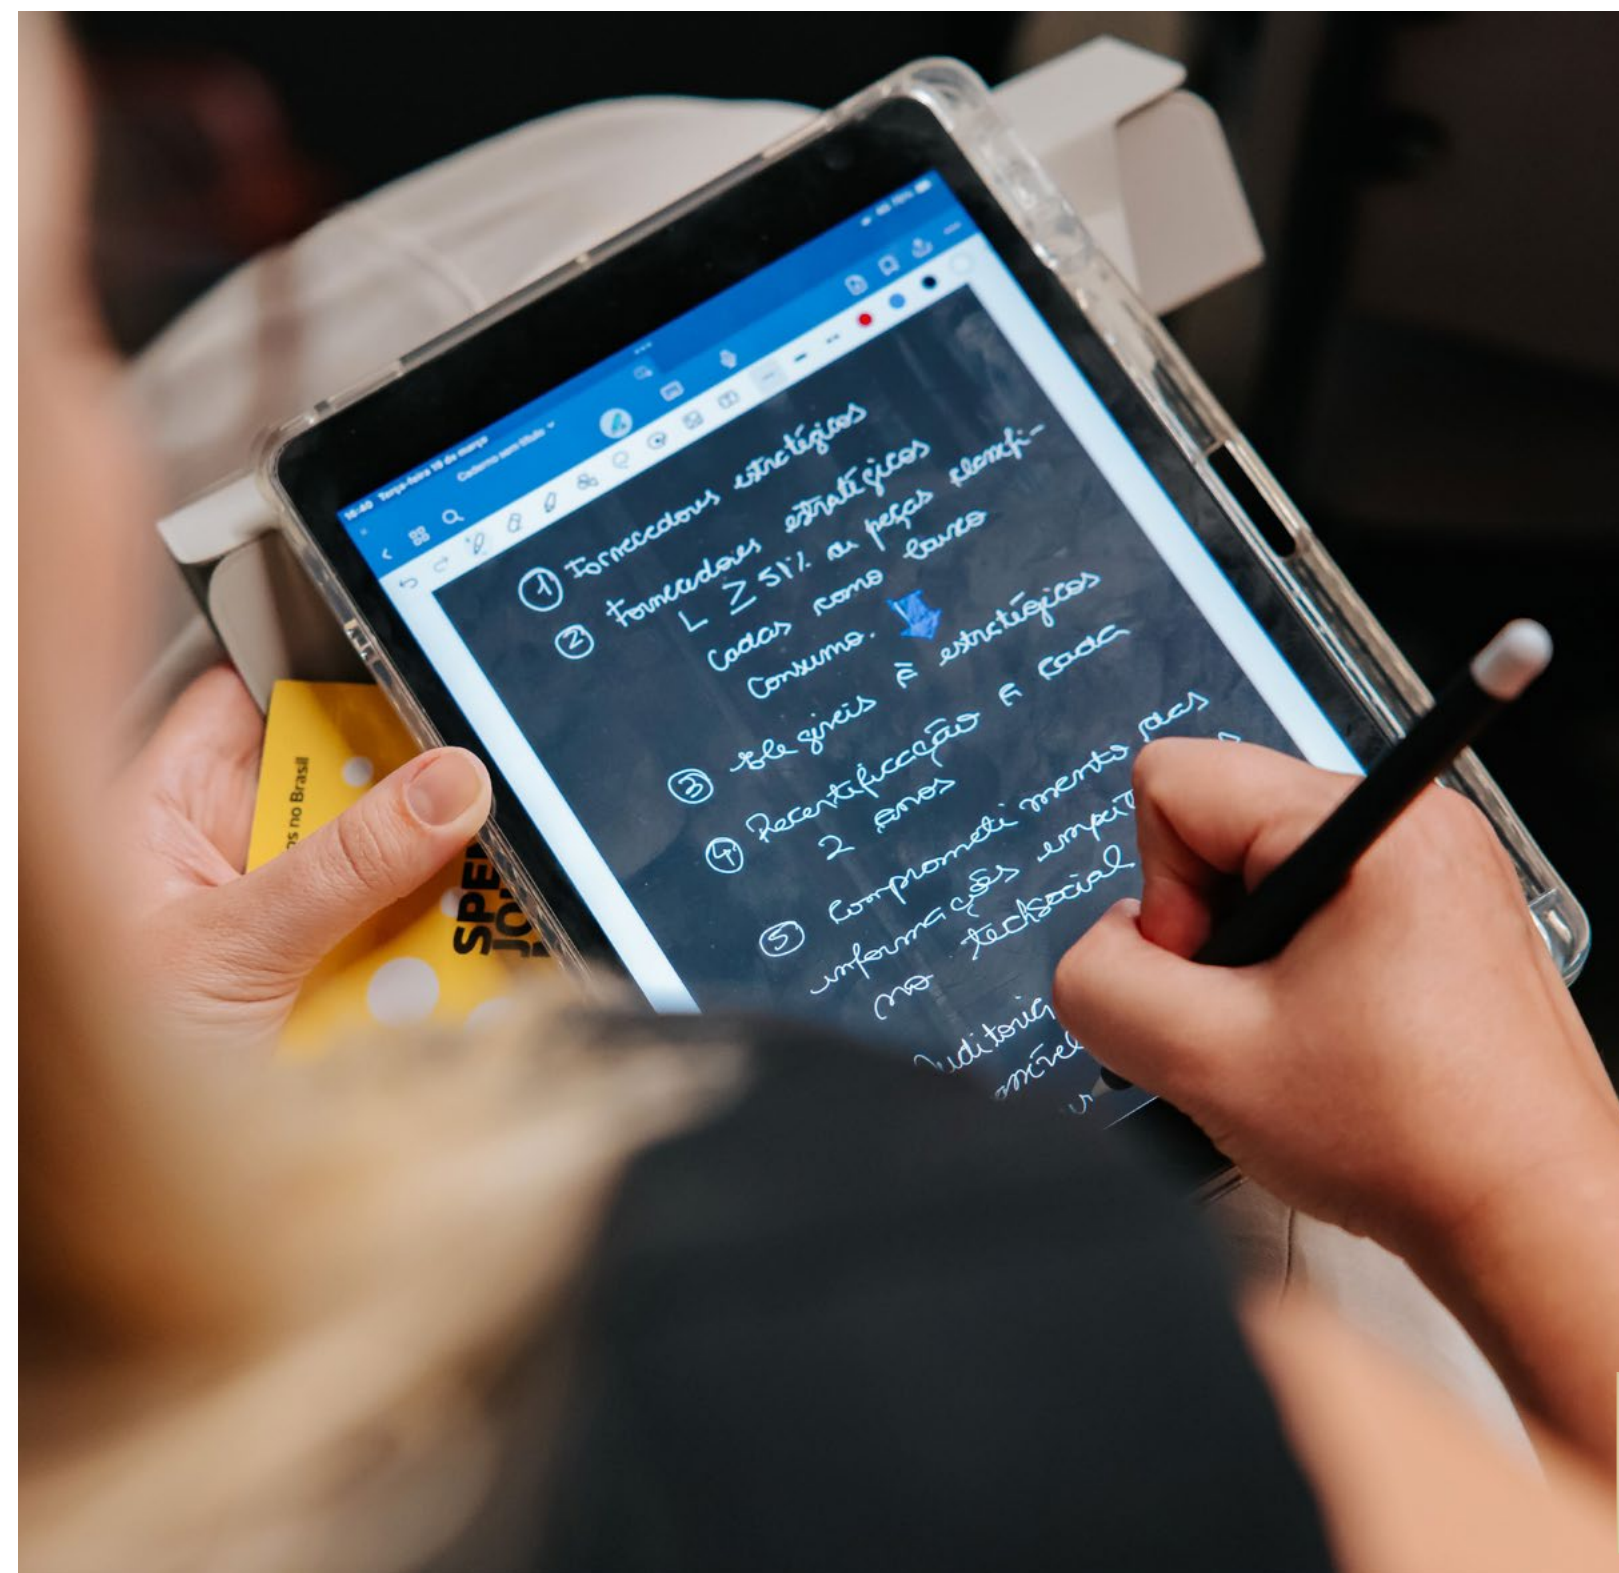 16:40 Terça-feira 18 de março
70%
Caderno sem título
① Fornecedores estratégicos
② Fornecedores estratégicos
L ≥ 51% de peças classifi-
cadas como baixo
consumo.
③ Elegíveis à estratégicos
④ Recertificação a cada
2 anos
⑤ Comprometimento das
informações
no techsocial
Auditoria
nível
os no Brasil
SPE
JO